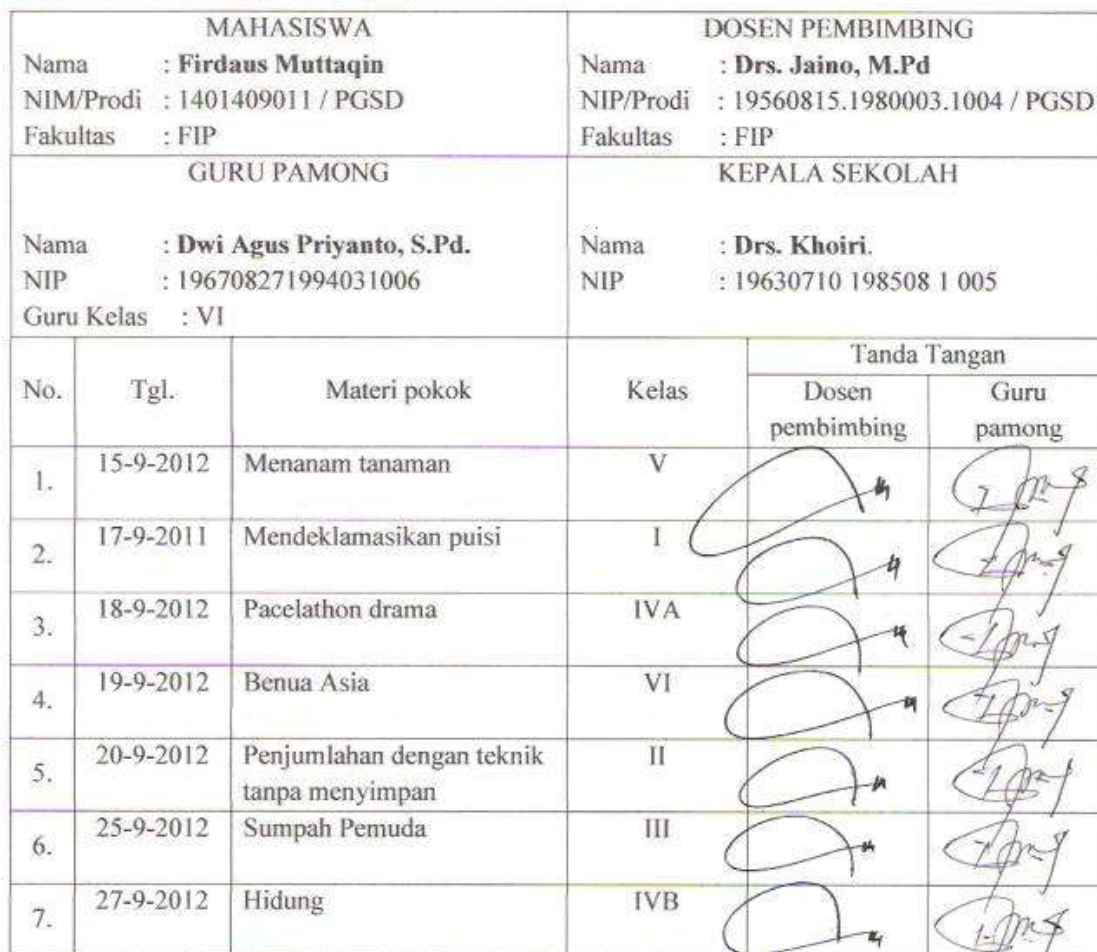 MAHASISWA
Nama : Firdaus Muttaqin
NIM/Prodi : 1401409011 / PGSD
Fakultas : FIP
DOSEN PEMBIMBING
Nama : Drs. Jaino, M.Pd
NIP/Prodi : 19560815.1980003.1004 / PGSD
Fakultas : FIP
GURU PAMONG
Nama : Dwi Agus Priyanto, S.Pd.
NIP : 196708271994031006
Guru Kelas : VI
KEPALA SEKOLAH
Nama : Drs. Khoiri.
NIP : 19630710 198508 1 005
No. Tgl. Materi pokok Kelas Tanda Tangan
Dosen pembimbing Guru pamong
1. 15-9-2012 Menanam tanaman V
2. 17-9-2011 Mendeklamasikan puisi I
3. 18-9-2012 Pacelathon drama IVA
4. 19-9-2012 Benua Asia VI
5. 20-9-2012 Penjumlahan dengan teknik
tanpa menyimpan II
6. 25-9-2012 Sumpah Pemuda III
7. 27-9-2012 Hidung IVB